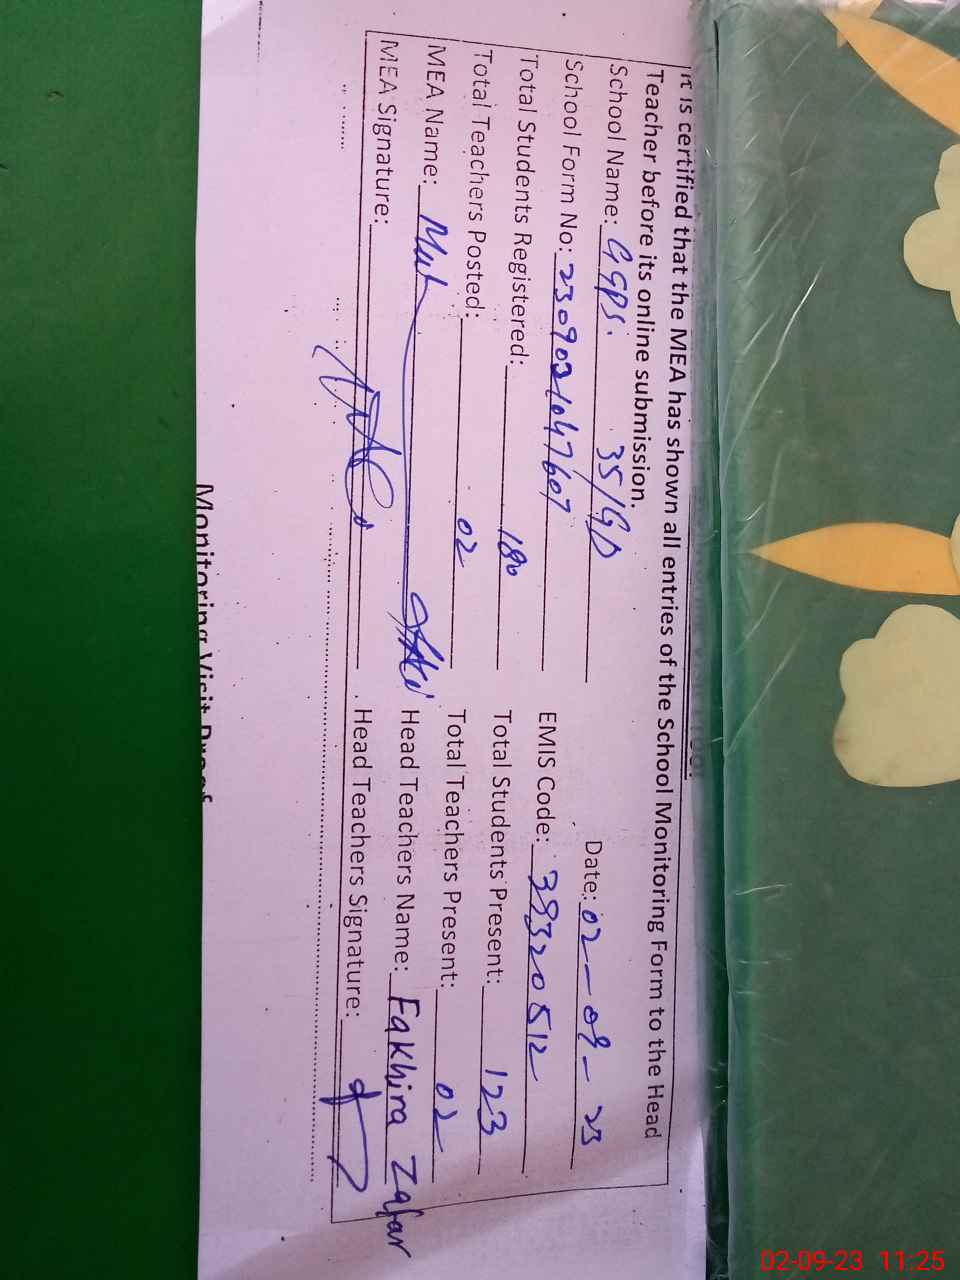 It is certified that the MEA has shown all entries of the School Monitoring Form to the Head
Teacher before its online submission.
School Name: GGPS. 35/GD Date: 02-09-23
School Form No: 2309031047607 EMIS Code: 39320512
Total Students Registered: 180 Total Students Present: 123
Total Teachers Posted: 02 Total Teachers Present: 02
MEA Name: Head Teachers Name: Fakhira Zafar
MEA Signature: Head Teachers Signature:
Monitoring Visit Proof
02-09-23 11:25